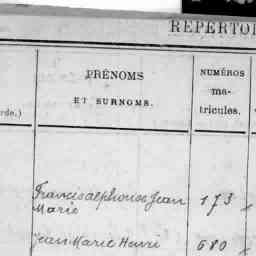 REPERTO
PRÉNOMS
ET SURNOMS.
NUMÉROS
ma-
tricules.
rde.)
Francisalphonse Jean
Marie
173
Jean Marie Henri
680